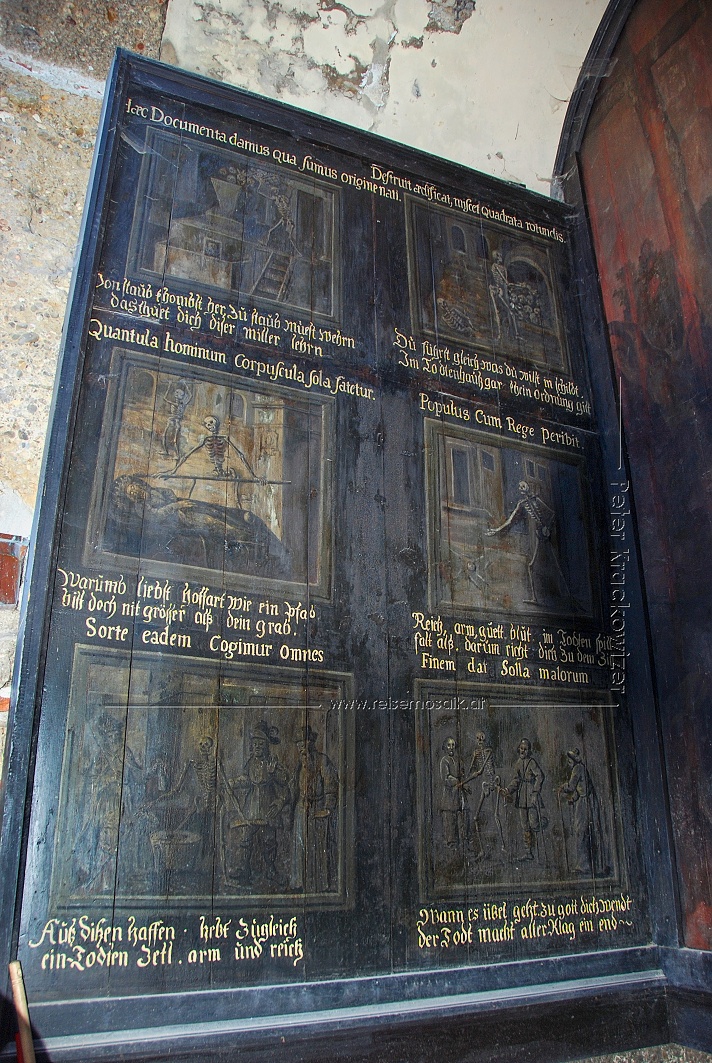 Haec Documenta damus qua sumus origine nati.
Von staub khombst her, Zů staub můest wehrn
das thuet dich diser miller lehrn
Quantula hominum Corpuscula sola fatetur.
Warumb liebst hoffart wie ein Pfab
bist doch nit grösser alß dein grab.
Sorte eadem Cogimur Omnes
Auß disen haffen . hebt Zůgleich
ein Todten Zetl . arm und reich
Destruit aedificat, miscet Quadrata rotundis.
Du fuhrst gleich was du wilst im schildt.
Im Todtenhauß gar khein Ordnung gilt
Populus Cum Rege peribit.
Reich, arm, guett blüt, im Todten spill
falt alß. darum richt dich Zu dem
Finem dat Solla malorum
Wann es übel geht zu gott dich wendt
der Todt macht aller Klag ein end
Peter Kračkowizer
www.reisemosaik.at